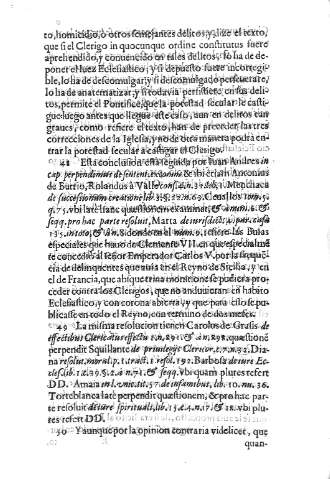 to, homicidio, o otros semejantes delitos, y dize el texto,
que si el Clerigo in quocunque ordine constitutus fuere
aprehendido, y convencido en tales delitos, lo ha de de-
poner el Iuez Eclesiastico, y si depuesto fuere incorregi-
ble, lo ha de descomulgar, y si descomulgado perseverare,
lo ha de anatematizar, y si todavia persistiere en sus deli-
tos, permite el Pontifice, que la potestad secular le casti-
gue luego antes que llegue este caso, aun en delitos tan
graves, como refiere el texto, han de preceder las tres
correcciones de la Iglesia, y no de otra manera podrà en-
trar la potestad secular à castigar el Clerigo.
48 Esta conclusion està seguida por Iuan Andres in
cap. perpendimus de sentent. excomun. & ibi etiam Antonius
de Butrio, Rolandus à Valle Menchaca
de successionum creatione lib. 3. §. 22. n. 69. Cenallos tom. 5.
q. 75. vbi late hanc quæstionem examinat, & à num. 1. &
seqq. pro hac parte resoluit, Marta de iurisdict. 4. par. casu
135. in toto, & à n. 8. donde en el num. 9. refiere las Bulas
especiales que huvo de Clemente VII. en que especialmẽ
te concediò al señor Emperador Carlos V. por la frequẽ
cia de delinquentes que avia en el Reyno de Sicilia, y en
el de Francia, que absque trina monitione se pudiera pro-
ceder contra los Clerigos, que no anduvieran en habito
Eclesiastico, y con corona abierta, y que para ello se pu-
blicasse en todo el Reyno, con termino de dos meses.
49 La misma resolucion tienen Carolus de Grasis de
effectibus Clericatus effectu 1. n. 291. & à n. 298. quæstionẽ
perpendit Squillante de privilegijs Clericor. c. 7. n. 32. Dia-
na resolut. moral. p. 1. tract. 2. resol. 192. Barbosa de iure Ec-
clesi. lib. 1. c. 39. §. 2. n. 71. & seqq. vbi quam plures refert
DD. Amaia in l. vnic. tit. 57. de infamibus, lib. 10. nu. 36.
Torreblanca late perpendit quæstionem, & pro hac par-
te resoluit de iure spirituali, lib. 15. c. 4. n. 17. & 18. vbi plu-
res refert DD.
50 Y aunque por la opinion contraria videlicet, que
quan-